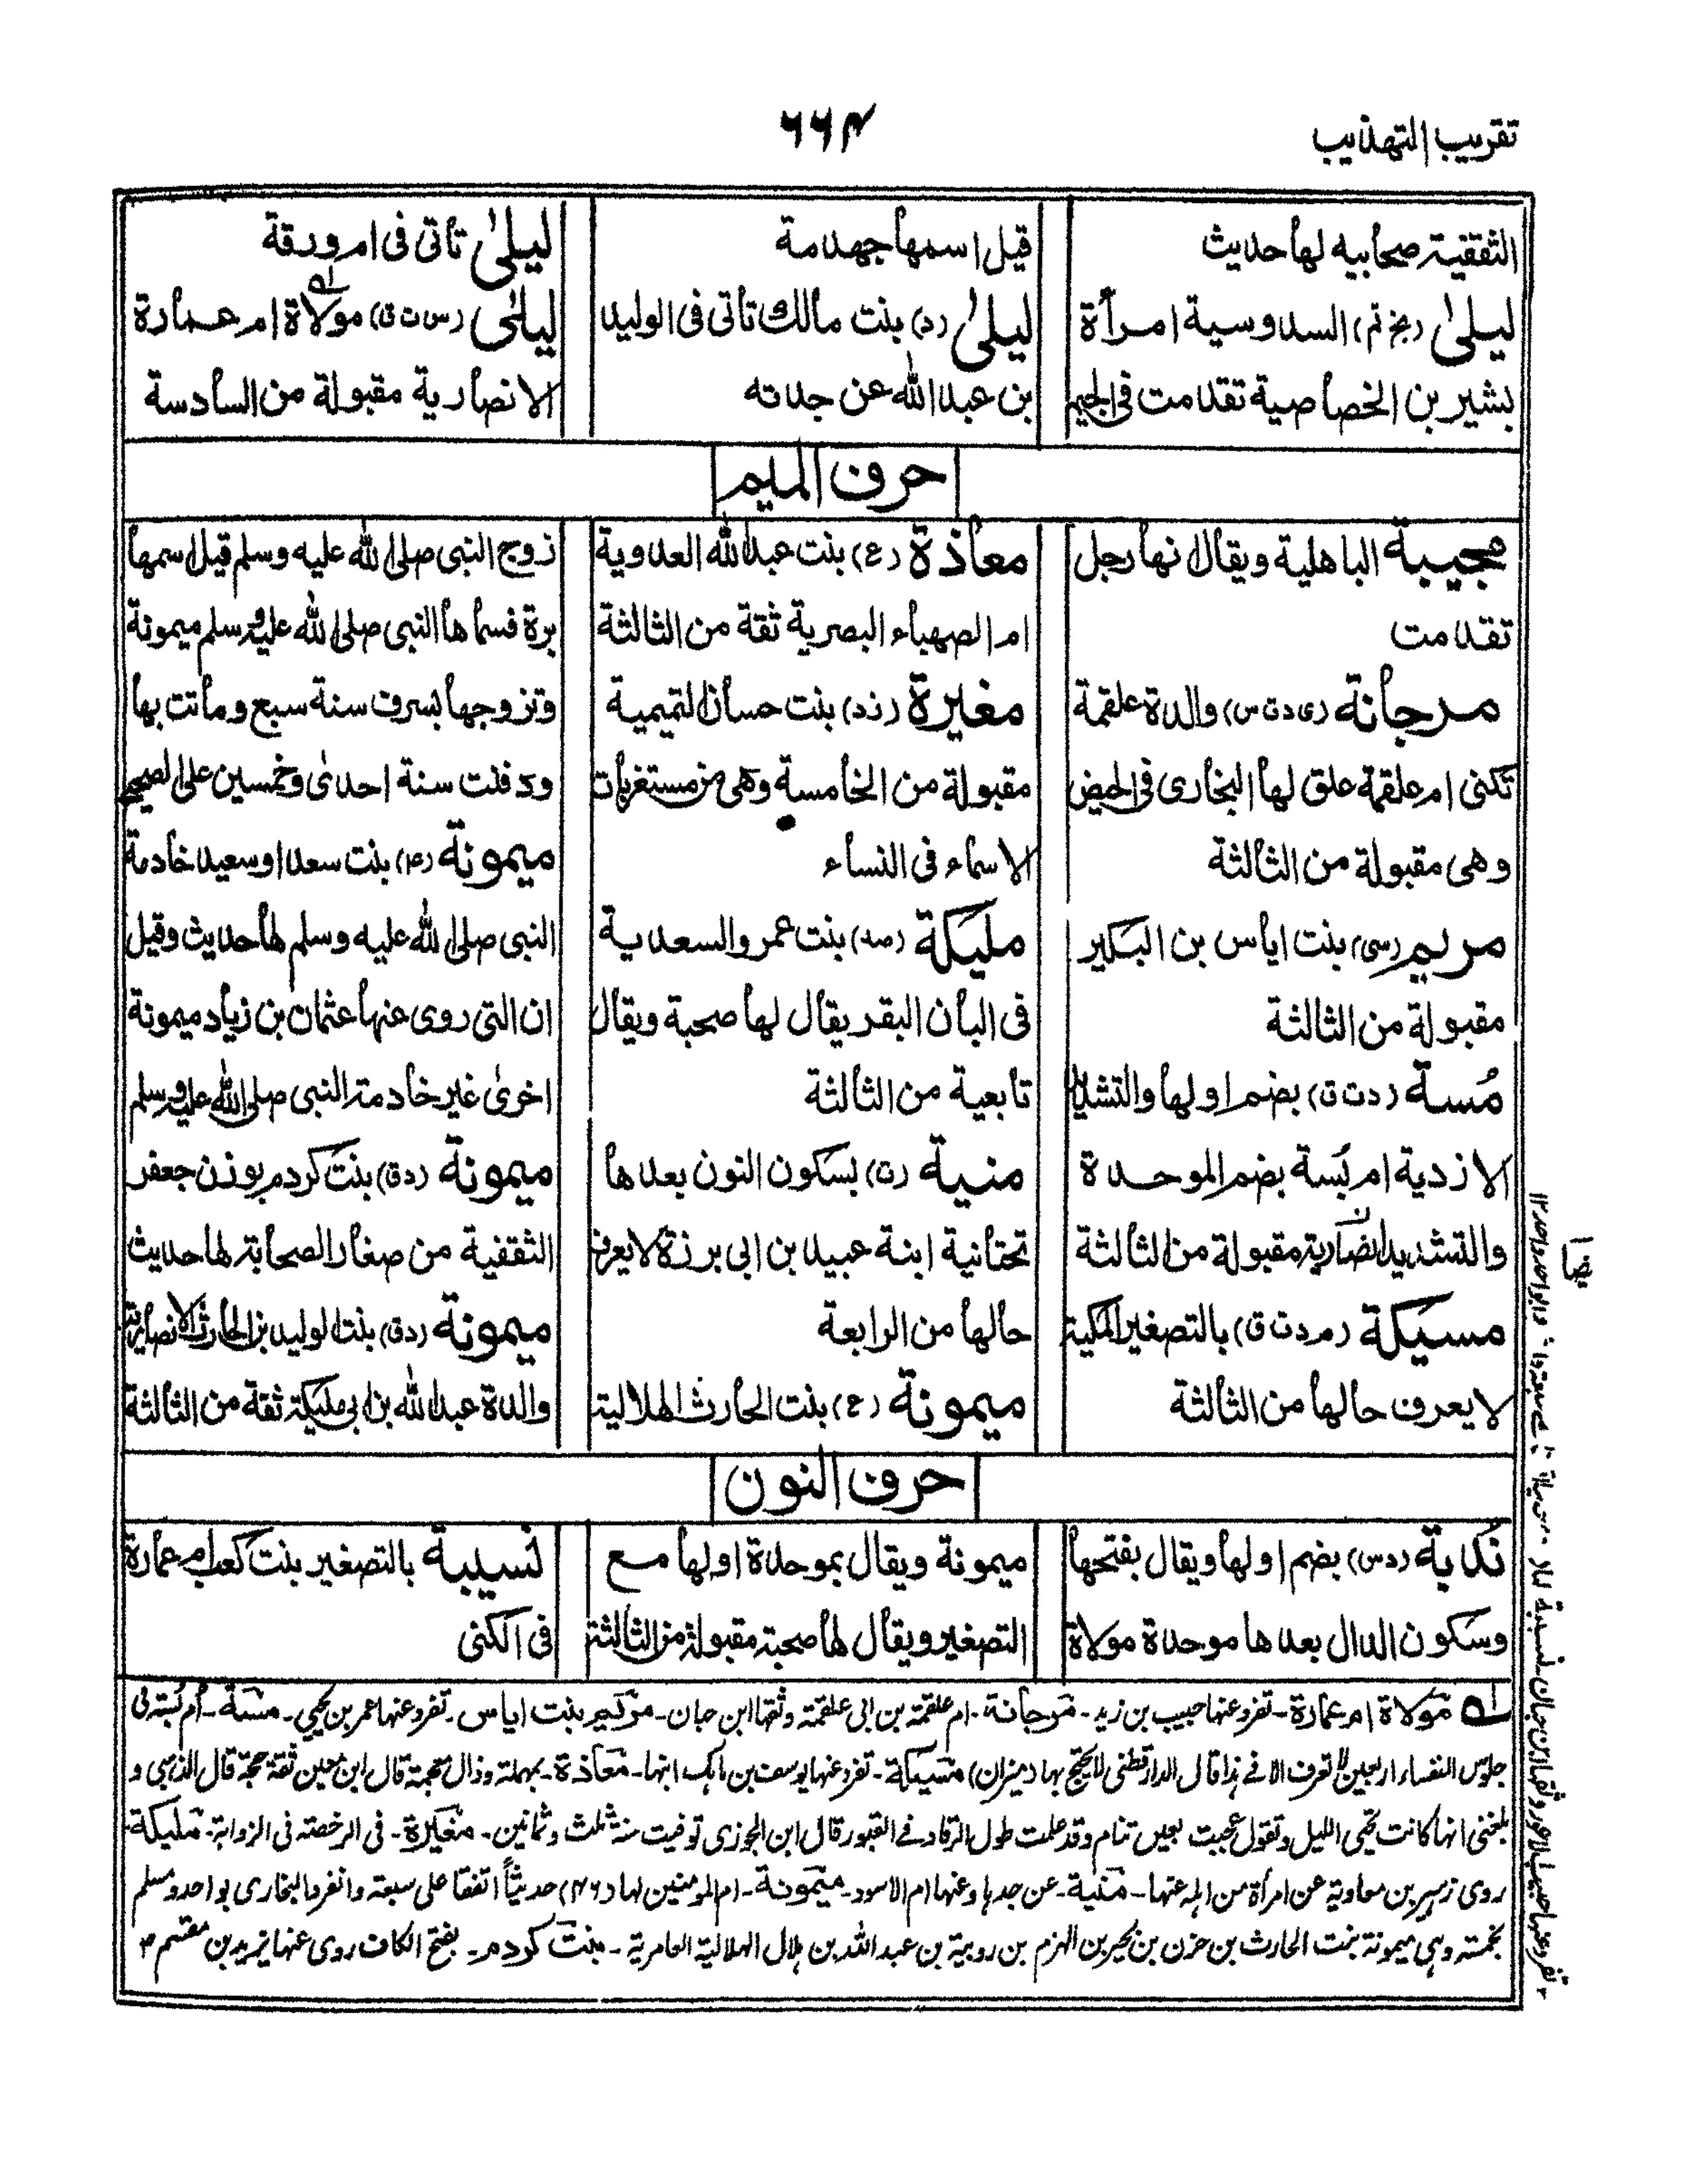 تقريب التهذيب
٦٦٤
الثقفية صحابيه لها حديث
ليلىٰ (بخ تم) السدوسية امرأة
بشير بن الخصاصية تقدمت فى الجيم
قيل اسمها جهدمة
ليلىٰ (د) بنت مالك تأتى فى الوليد
بن عبد الله عن جدته
ليلىٰ تأتى فى ام ورقة
ليلىٰ (س ت ق) مولاة ام عمارة
الانصارية مقبولة من السادسة
حرف الميم
مجيبة الباهلية ويقال انها رجل
تقدمت
مرجانة (ى د ت س) والدة علقمة
تكنى ام علقمة علق لها البخارى فى الحيض
وهى مقبولة من الثالثة
مريم (سى) بنت اياس بن البكير
مقبولة من الثالثة
مُسة (د ت ق) بضم اولها والتشديد
الازدية ام بُسة بضم الموحدة
والتشديد ايضا مقبولة من الثالثة
مسيكة (م د ت ق) بالتصغير المكية
لا يعرف حالها من الثالثة
معاذة (ع) بنت عبد الله العدوية
ام الصهباء البصرية ثقة من الثالثة
مغيرة (ز د) بنت حسان التميمية
مقبولة من الخامسة وهى من مستغربات
الاسماء فى النساء
مليكة (مد) بنت عمرو السعدية
فى البان البقر يقال لها صحبة ويقال
تابعية من الثالثة
منية (ت) بسكون النون بعدها
تحتانية ابنة عبيد بن ابى برزة لا يعرف
حالها من الرابعة
ميمونة (ع) بنت الحارث الهلالية
زوج النبى صلى الله عليه وسلم قيل اسمها
برة فسماها النبى صلى الله عليه وسلم ميمونة
وتزوجها بسرف سنة سبع وماتت بها
ودفنت سنة احدىٰ وخمسين على الصحيح
ميمونة (٤) بنت سعد او سعيد خادمة
النبى صلى الله عليه وسلم لها حديث وقيل
ان التى روى عنها عثمان بن زياد ميمونة
اخرىٰ غير خادمة النبى صلى الله عليه وسلم
ميمونة (د ق) بنت كردم بوزن جعفر
الثقفية من صغار الصحابة لها حديث
ميمونة (د ق) بنت الوليد بن الحارث الانصارية
والدة عبد الله بن ابى مليكة ثقة من الثالثة
حرف النون
نُدبة (د س) بضم اولها ويقال بفتحها
وسكون الدال بعدها موحدة مولاة
ميمونة ويقال بموحدة اولها مع
التصغير ويقال لها صحبة مقبولة من الثالثة
نسيبة بالتصغير بنت كعب ام عمارة
فى الكنى
مولاة ام عمارة - تفرد عنها حبيب بن زيد - مرجانة - ام علقمة بن ابى علقمة وثقها ابن حبان - مريم بنت اياس - تفرد عنها عمر بن يحيي - مسة - أم بُسة فى
جلوس النفساء اربعين لا تعرف الا فى هذا قال الدارقطنى لا يحتج بها (ميزان) مسيكة - تفرد عنها يوسف بن ماهك ابنها - معاذة - بمهملة وذال معجمة قال ابن معين ثقة حجة قال الذهبى و
بلغنى انها كانت تحيى الليل وتقول عجبت بعين تنام وقد علمت طول الرقاد فى القبور قال ابن الجوزى توفيت سنة ثلث وثمانين - مغيرة - فى الرخصة فى الزوابة - مليكة -
روى زهير بن معاوية عن امرأة من اهله عنها - منية - عن جدها وعنها ام الاسود - ميمونة - ام المومنين لها (٤٦) حديثاً اتفقا على سبعة وانفرد البخارى بواحد ومسلم
بخمسة وهى ميمونة بنت الحارث بن حزن بن بجير بن الهزم بن رويبة بن عبد الله بن هلال الهلالية العامرية - بنت كردم - بفتح الكاف روى عنها يزيد بن مقسم